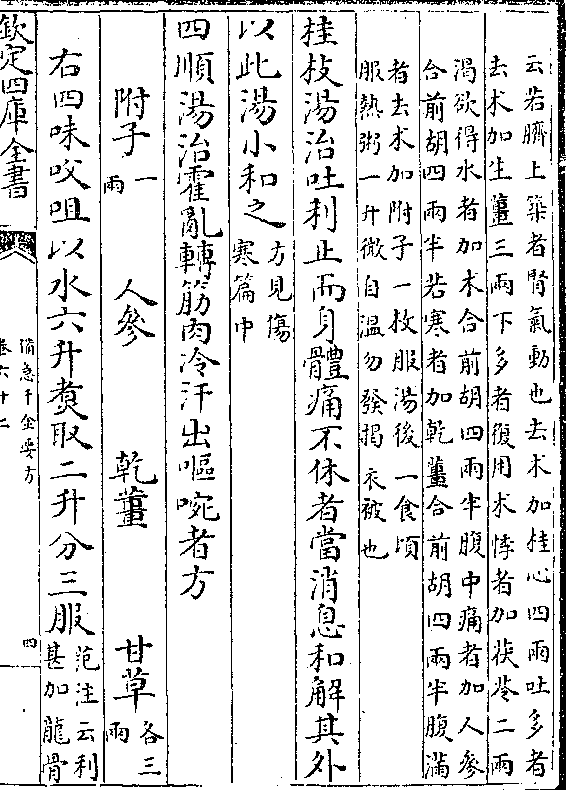 云若臍上築者腎氣動也去朮加桂心四兩吐多者
去朮加生薑三兩下多者復用朮悸者加茯苓二兩
渴欲得水者加朮合前胡四兩半腹中痛者加人參
合前胡四兩半若寒者加乾薑合前胡四兩半腹滿
者去朮加附子一枚服湯後一食頃
服熱粥一升微自溫勿發揭衣被也
桂枝湯治吐利止而身體痛不休者當消息和解其外
以此湯小和之方見傷寒篇中
四順湯治霍亂轉筋肉冷汗出嘔啘者方
附子一兩 人參 乾薑 甘草各三兩
右四味㕮咀以水六升煑取二升分三服范注云利甚加龍骨
欽定四庫全書
備急千金要方
卷六十二
四